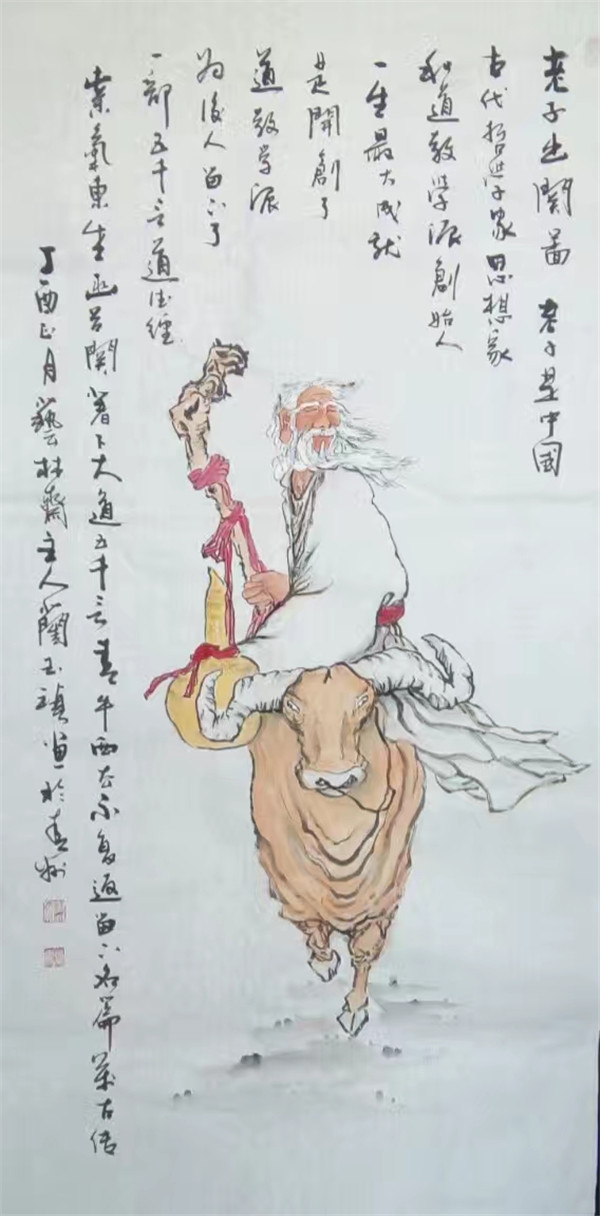 老子出関啚 老子是中国
古代哲学家思想家
和道教学派創始人
一生最大成就
是開創了
道教学派
为後人留下了
一部五千言道德经
紫氣東生函谷関著下大道五千言青牛西去不复返留下名篇萬古传
丁酉正月藝林齋主人蘭玉禎畫於青州